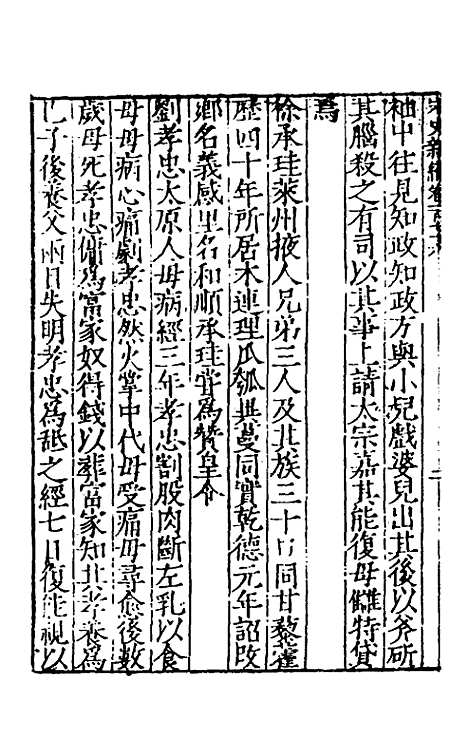 袖中往見知政知政方與小兒戲婆兒出其後以斧斫
其腦殺之有司以其事上請太宗嘉其能復母讎特貸
焉
徐承珪萊州掖人兄弟三人及其族三十口同甘藜藿
歷四十年所居木連理瓜瓠異蔓同實乾德元年詔改
鄉名義感里名和順承珪嘗為贊皇令
劉孝忠太原人母病經三年孝忠割股肉斷左乳以食
母母病心痛劇孝忠然火掌中代母受痛母尋愈後數
歲母死孝忠傭為富家奴得錢以葬富家知其孝養為
己子後養父兩目失明孝忠為舐之經七日復能視以